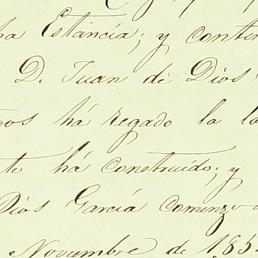 ha Estancia; y conti
D. Juan de Dios
os há regado la la
to há construido; y
Dios García comenzó
Noviembre de 185